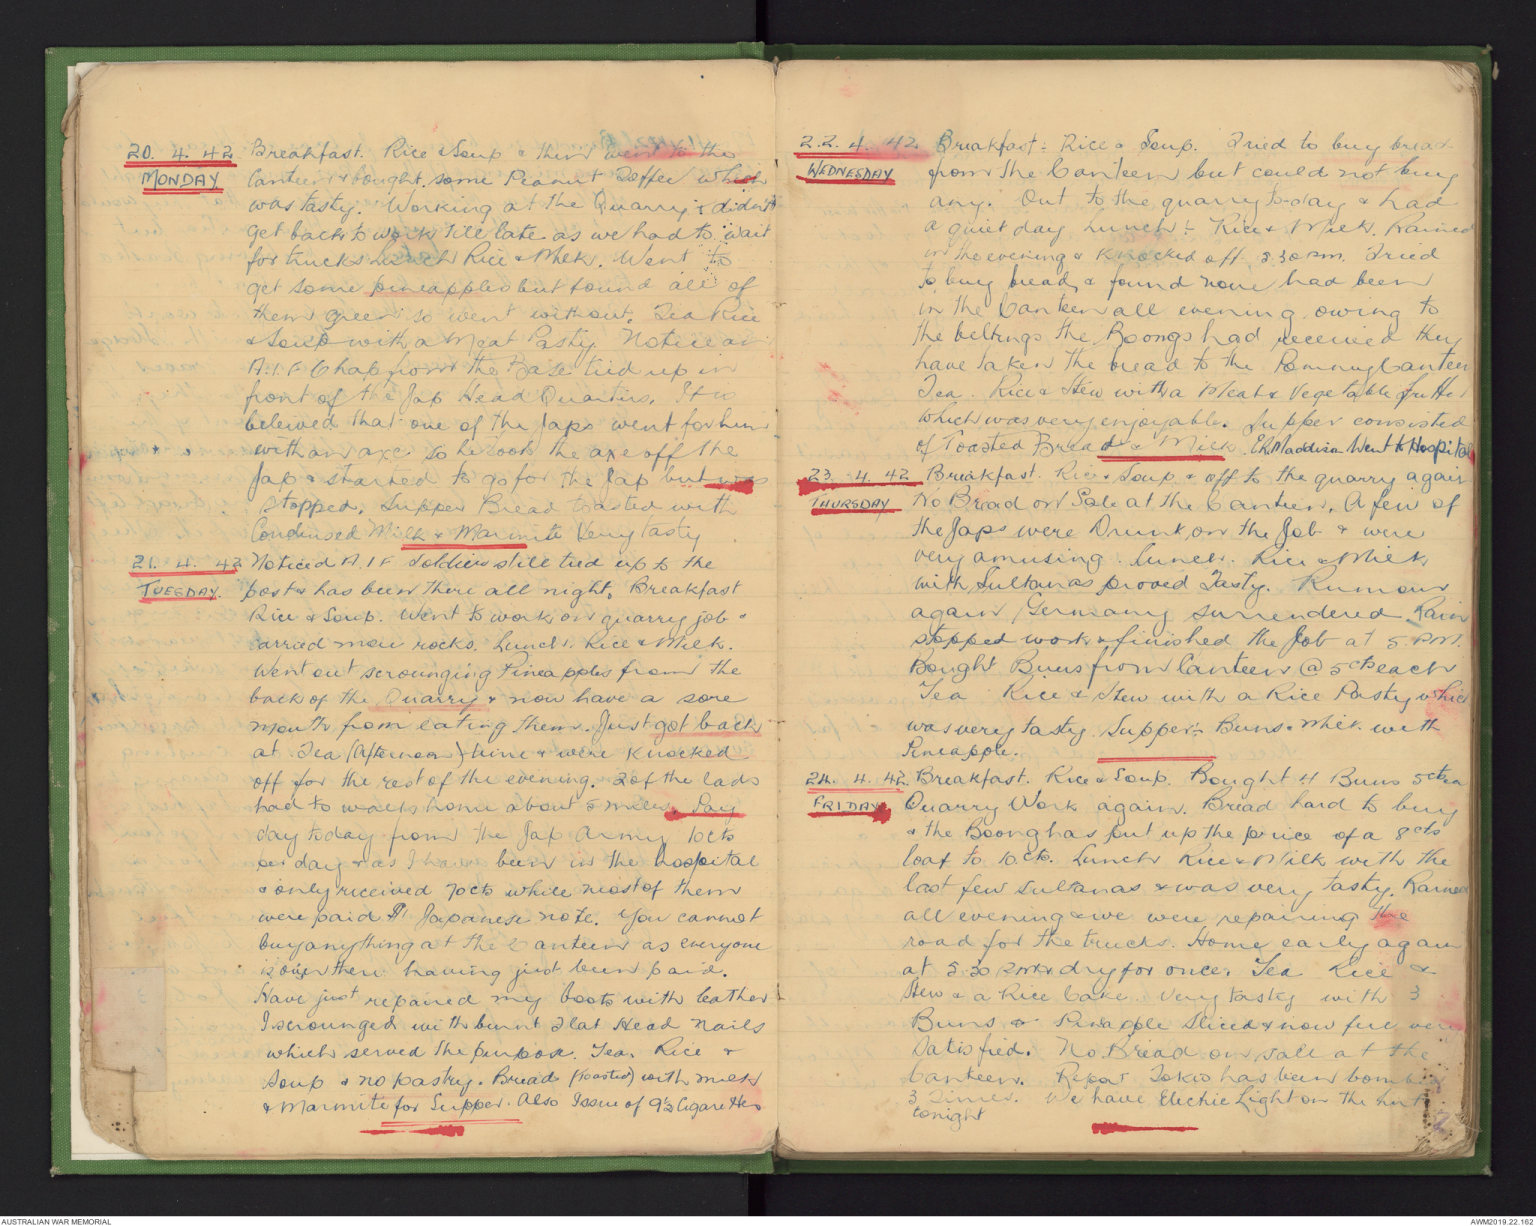 20. 4. 42 Breakfast. Rice & Soup & then went to the
MONDAY Canteen & bought some Peanut Toffee which
was tasty. Working at the Quarry & didn't
get back to work till late as we had to wait
for trucks Lunch Rice & Milk. Went to
get some pineapples but found all of
them green so went without. Tea Rice
& Soup with a Meat Pasty. Notice an
A.I.F Chap from the Base tied up in
front of the Jap Head Quarters. It is
beleived that one of the Japs went for him
with an axe so he took the axe off the
Jap & started to go for the Jap but was
stopped. Supper Bread toasted with
Condensed Milk & Marmite Very tasty
21. 4. 42 Noticed A.I.F Soldier still tied up to the
TUESDAY. post & has been there all night. Breakfast
Rice & Soup. Went to work on quarry job &
carried more rocks. Lunch. Rice & Milk.
Went out scrounging Pineapples from the
back of the Quarry & now have a sore
mouth from eating them. Just got back
at Tea (Afternoon) time & were Knocked
off for the rest of the evening. 2 of the lads
had to walk home about 5 miles. Pay
day today from the Jap Army 10cts
per day & as I have been in the hospital
& only received 70cts while most of them
were paid $1 Japanese note. You cannot
buy anything at the Canteen as everyone
is over there having just been paid.
Have just repaired my boots with leather
I scrounged with burnt Flat Head nails
which served the purpose. Tea. Rice &
Soup & no pastry. Bread (toasted) with milk
& Marmite for Supper. Also Issue of 9½ Cigarettes
22. 4. 42. Breakfast:- Rice & Soup. Tried to buy bread
WEDNESDAY from the Canteen but could not buy
any. Out to the quarry to-day & had
a quiet day Lunch:- Rice & Milk. Rained
in the evening & Knocked off 3.30 P.M. Tried
to buy bread & found none had been
in the Canteen all evening owing to
the beltings the Boongs had received they
have taken the bread to the Pommy Canteen
Tea. Rice & Stew with a Meat & Vegetable fritter
which was very enjoyable. Supper consisted
of Toasted Bread & Milk. E.R. Maddison Went to Hospital
23. 4. 42 Breakfast. Rice & Soup & off to the quarry again
THURSDAY No Bread on Sale at the Canteen. A few of
the Japs were Drunk on the Job & were
very amusing. Lunch. Rice & Milk
with Sultanas proved Tasty. Rumour
again Germany surrendered Rain
stopped work & finished the Job at 5. P.M.
Bought Buns from Canteen @ 5cts each
Tea Rice & Stew with a Rice Pasty which
was very tasty. Supper:- Buns & Milk with
Pineapple.
24. 4. 42. Breakfast. Rice & Soup. Bought 4 Buns 5cts ea
FRIDAY Quarry Work again. Bread hard to buy
& the Boong has put up the price of a 8cts
loaf to 10.cts. Lunch Rice & Milk with the
last few sultanas & was very tasty. Rained
all evening & we were repairing the
road for the trucks. Home early again
at 5.30 P.M & dry for once. Tea Rice &
Stew & a Rice Cake. Very tasty with 3
Buns & Pineapple Sliced & now feel very
satisfied. No Bread on sale at the
Canteen. Repor Tokio has been bombed
3 Times. We have Electric Light on the hut
tonight
AUSTRALIAN WAR MEMORIAL
AWM2019.22.162